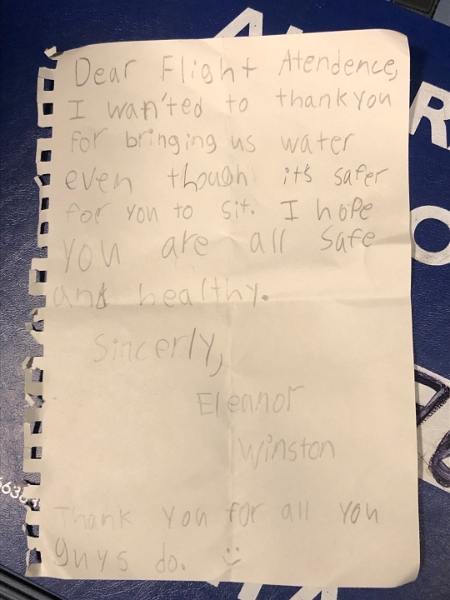 Dear Flight Atendence,
I wan'ted to thankyou
for bringing us water
even though it's safer
for you to sit. I hope
you are all safe
and healthy.
Sincerly,
Eleanor
Winston
Thank you for all you
guys do. :)